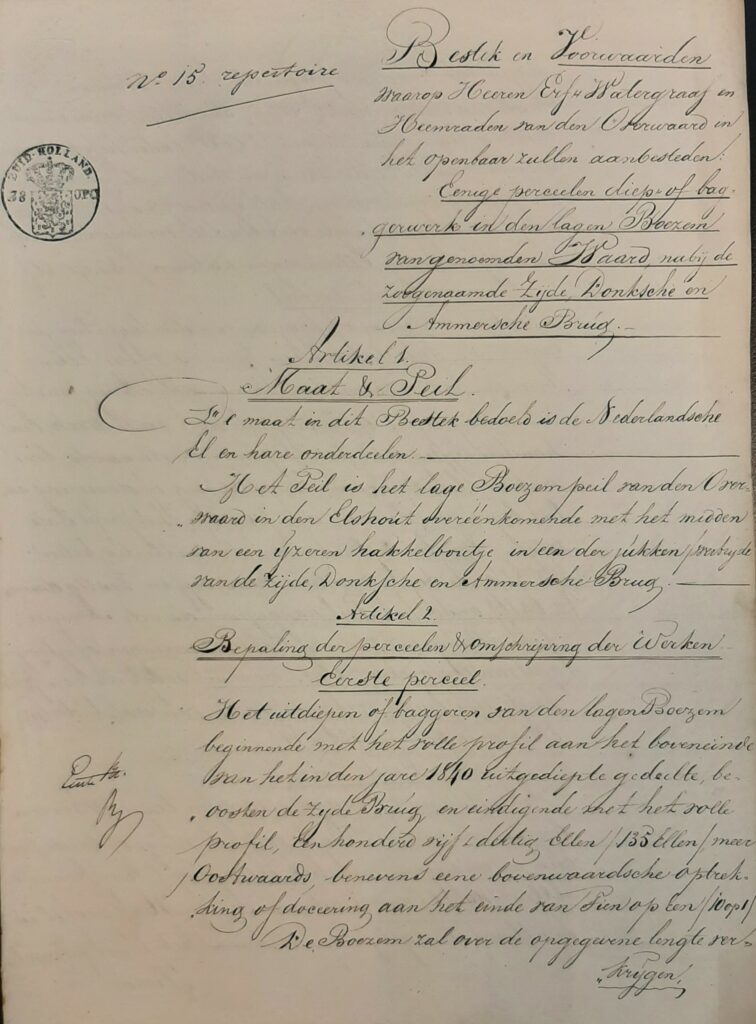 No 15. repertoire
Bestek en Voorwaarden
waarop Heeren Erf- Watergraaf en
Heemraden van den Overwaard in
het openbaar zullen aanbesteden:
Eenige perceelen diep- of bag-
gerwerk in den lagen Boezem
van genoemden Waard, nabij de
zoogenaamde Zijde, Donksche en
Ammersche Brug.
ZUID-HOLLAND.
38 OPC
Artikel 1.
Maat & Peil.
De maat in dit Bestek bedoeld is de Nederlandsche
El en hare onderdeelen.
Het Peil is het lage Boezempeil van den Over-
„waard in den Elshout overéénkomende met het midden
van een ijzeren hakkelboutje in een der jukken
van de Zijde, Donksche en Ammersche Brug.
Artikel 2.
Bepaling der perceelen & omschrijving der Werken
Eerste perceel.
Het uitdiepen of baggeren van den lagen Boezem
beginnende met het volle profil aan het boveneinde
van het in den jare 1840 uitgediepte gedeelte, be-
„oosten de Zyde Brug en eindigende met het volle
profil, Eenhonderd vijf & dertig Ellen /135 Ellen/ meer
Oostwaards, benevens eene bovenwaardsche optrek-
„king of doceering aan het einde van Tien op Een /10 op 1/
De Boezem zal over de opgegevene lengte ver-
„krijgen.